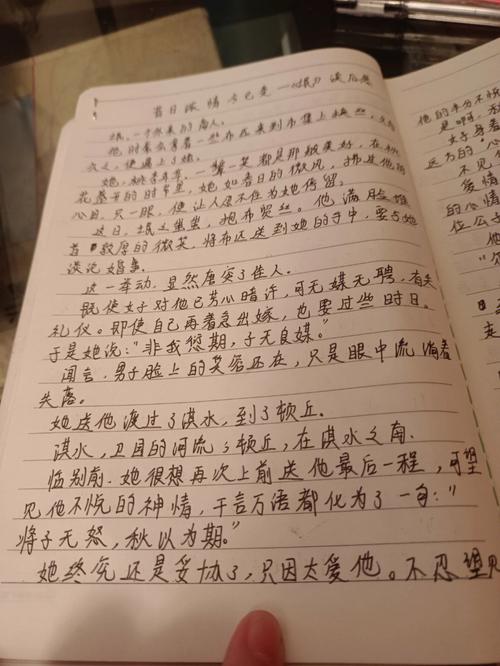 昔日浓情今已变—《氓》读后感
氓，一个外来的商人。
他时常会拿着一些布花来到市集上换丝，久而
久之，便遇上了她。
她，桃李年华，一颦一笑都是那般美好，在桃
花盛开的时节里，她如春日的微风，拂过他的
心田，只一眼，便让人忍不住为她停留。
这日，氓之蚩蚩，抱布贸丝。他满脸堆
着 敦厚的微笑，将布匹送到她的手中，要与她
谈论婚事。
这一举动，显然唐突了佳人。
既使女子对他已芳心暗许，可无媒无聘，有失
礼仪。即使自己再着急出嫁，也要过些时日。
于是她说："非我愆期，子无良媒。"
闻言，男子脸上的笑容还在，只是眼中流淌着
失落。
她送他渡过了淇水，到了顿丘。
淇水，卫国的河流；顿丘，在淇水之南。
临别前，她很想再次上前送他最后一程，可望
见他不悦的神情，千言万语都化为了一句："
将子无怒，秋以为期。"
她终究还是妥协了，只因太爱他。不忍望见
他的半分不悦
是啊，
女子身着
远方的"心
不见
爱情
的心情
位公子
他